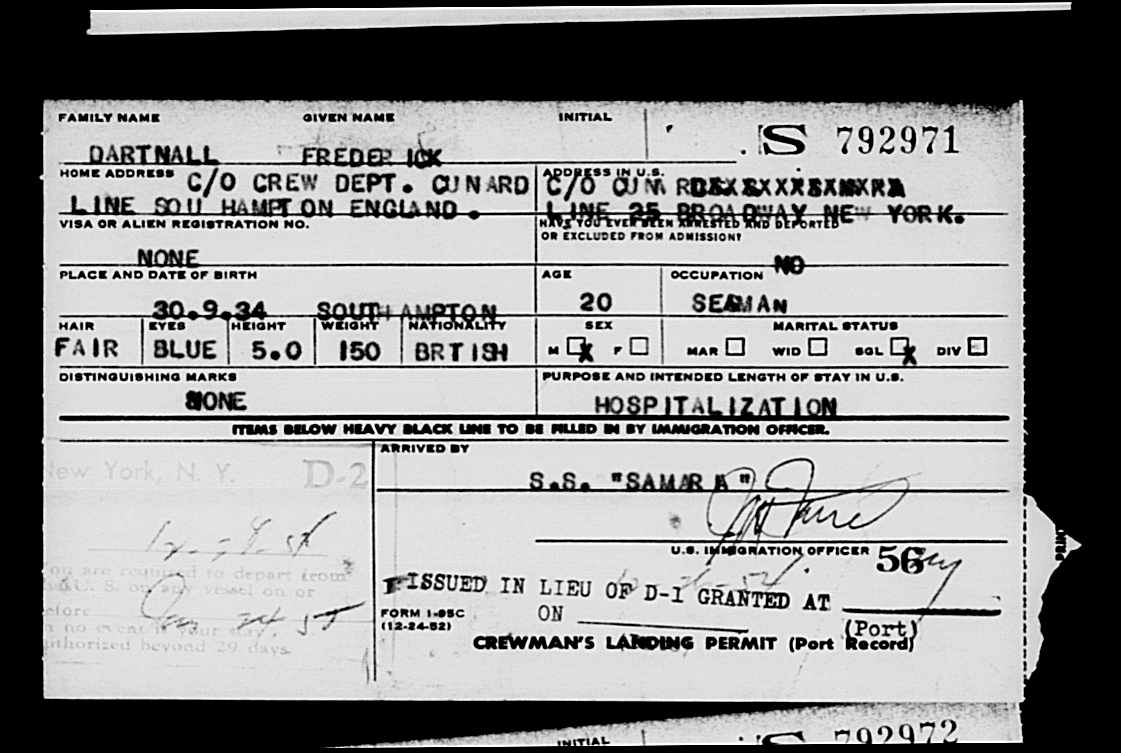 FAMILY NAME GIVEN NAME INITIAL
S 792971
DARTNALL FREDERICK
HOME ADDRESS C/O CREW DEPT. CUNARD
LINE SOUTHAMPTON ENGLAND.
ADDRESS IN U.S.
C/O CUNARD
LINE 25 BROADWAY NEW YORK.
VISA OR ALIEN REGISTRATION NO.
NONE
HAVE YOU EVER BEEN ARRESTED AND DEPORTED
OR EXCLUDED FROM ADMISSION?
NO
PLACE AND DATE OF BIRTH AGE OCCUPATION
30.9.34 SOUTHAMPTON 20 SEAMAN
HAIR EYES HEIGHT WEIGHT NATIONALITY SEX MARITAL STATUS
FAIR BLUE 5.0 150 BRTISH M X F MAR WID SGL X DIV
DISTINGUISHING MARKS PURPOSE AND INTENDED LENGTH OF STAY IN U.S.
NONE HOSPITALIZATION
ITEMS BELOW HEAVY BLACK LINE TO BE FILLED IN BY IMMIGRATION OFFICER.
ARRIVED BY
New York, N. Y. D-2
S.S. "SAMARIA"
U.S. IMMIGRATION OFFICER 56
you are required to depart from
the U. S. on any vessel on or
before
In no event is your stay
authorized beyond 29 days.
ISSUED IN LIEU OF D-1 GRANTED AT
ON
(Port)
FORM I-95C
(12-24-52)
CREWMAN'S LANDING PERMIT (Port Record)
INITIAL S 792972